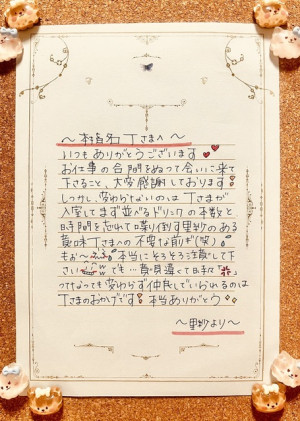 〜本指名Tさまへ〜
いつもありがとうございます
お仕事の合間をぬって会いに来て
下さること、大変感謝しております
しかし、変わらないのはTさまが
入室してまず並べるドリンクの本数と
時間を忘れて喋り倒す里紗のある
意味Tさまへの不要な前ギ(笑)
もぉ〜 本当にそろそろ注意して下
さい でも…費用違って日々"
ってなっても変わらず仲良しでいられるのは
Tさまのおかげです 本当ありがとう
〜里紗より〜